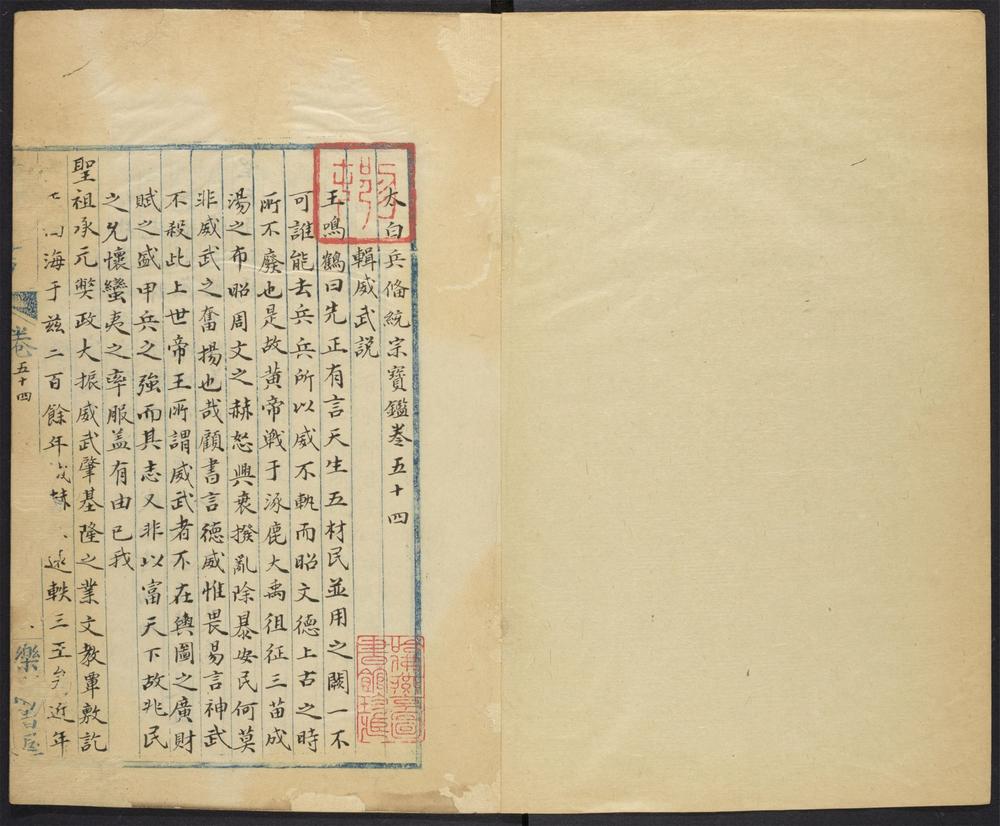 太白兵備統宗寶鑑卷五十四
輯威武說
王鳴鶴曰先正有言天生五材民並用之闕一不
可誰能去兵兵所以威不軌而昭文德上古之時
所不廢也是故黃帝戰于涿鹿大禹徂征三苗成
湯之布昭周文之赫怒興衰撥亂除暴安民何莫
非威武之奮揚也哉顧書言德威惟畏易言神武
不殺此上世帝王所謂威武者不在輿圖之廣財
賦之盛甲兵之強而其志又非以富天下故兆民
之允懷蠻夷之率服盖有由已我
聖祖承元弊政大振威武肇基隆之業文教覃敷訖
海于兹二百餘年赫遠軼三五近年
卷五十四
樂
哈佛燕京圖
書館珍藏